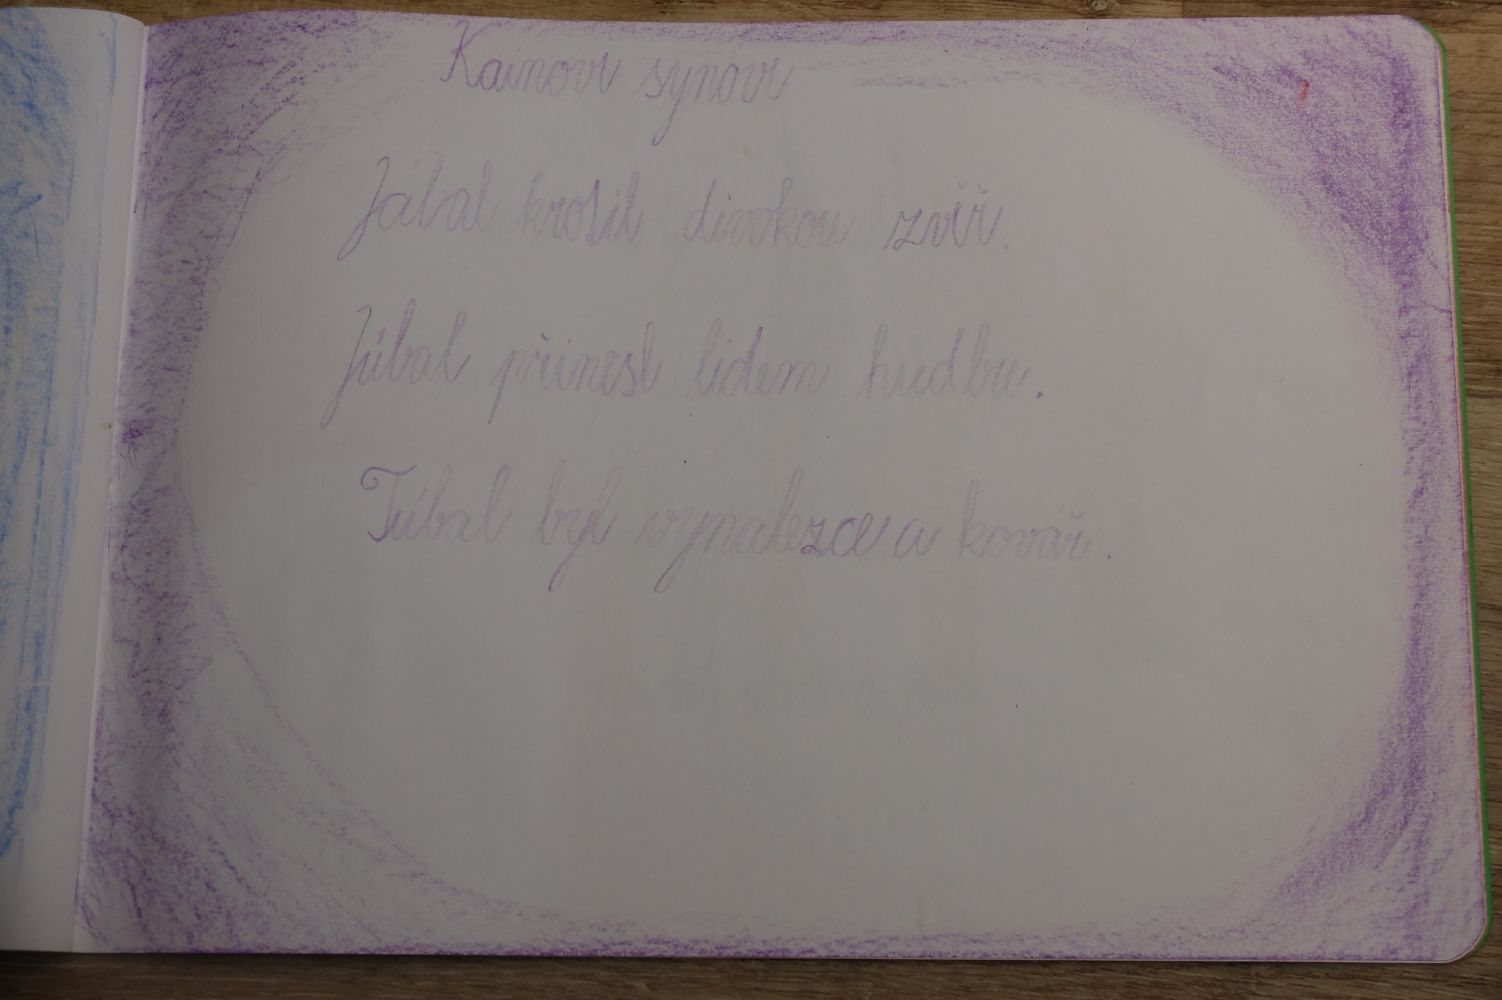 Kainovi synovi
Jábal krotil divokou zvěř.
Júbal přinesl lidem hudbu.
Túbal byl vynalezce a kovář.